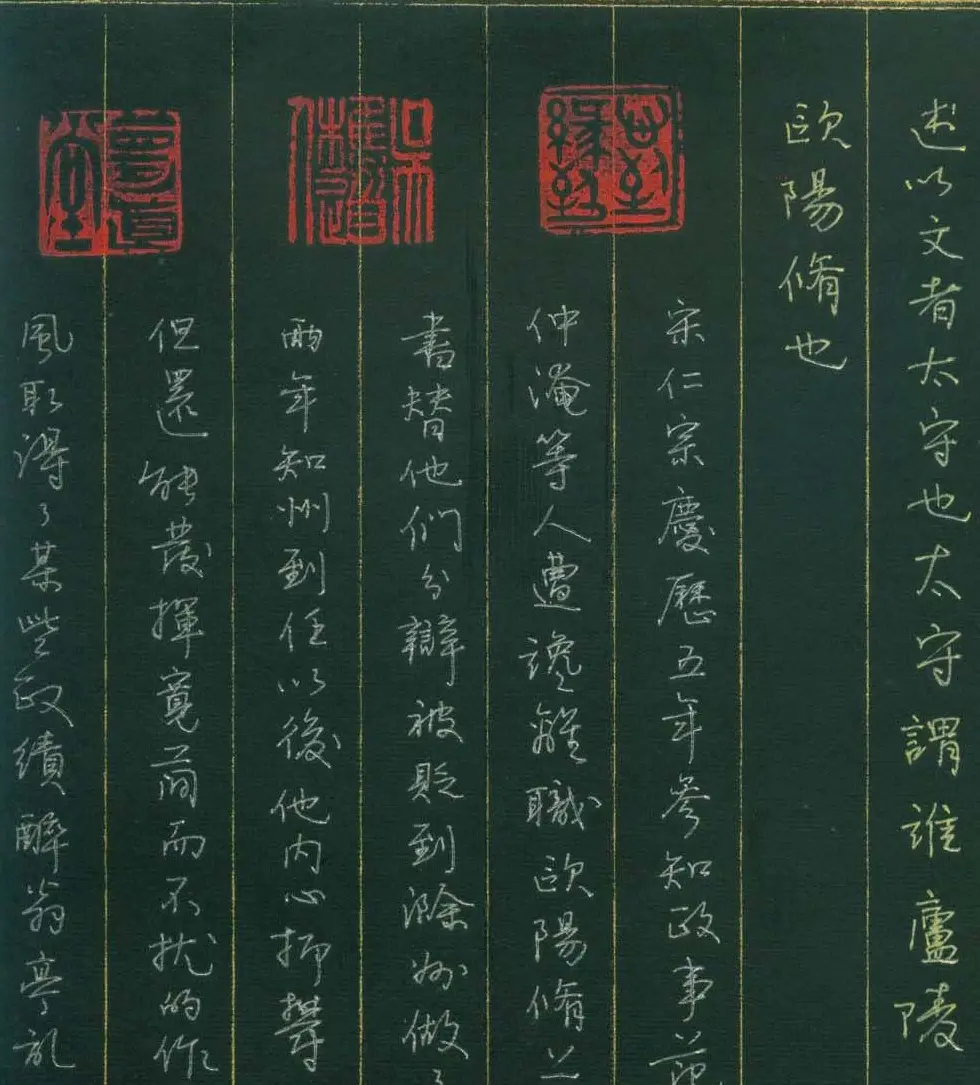 述以文者太守也太守謂誰廬陵
歐陽脩也
宋仁宗慶歷五年參知政事范
仲淹等人遭讒離職歐陽脩上
書替他們分辯被貶到滁州做了
兩年知州到任以後他内心抑鬱
但還能發揮寬簡而不扰的作
風取得了某些政績醉翁亭記